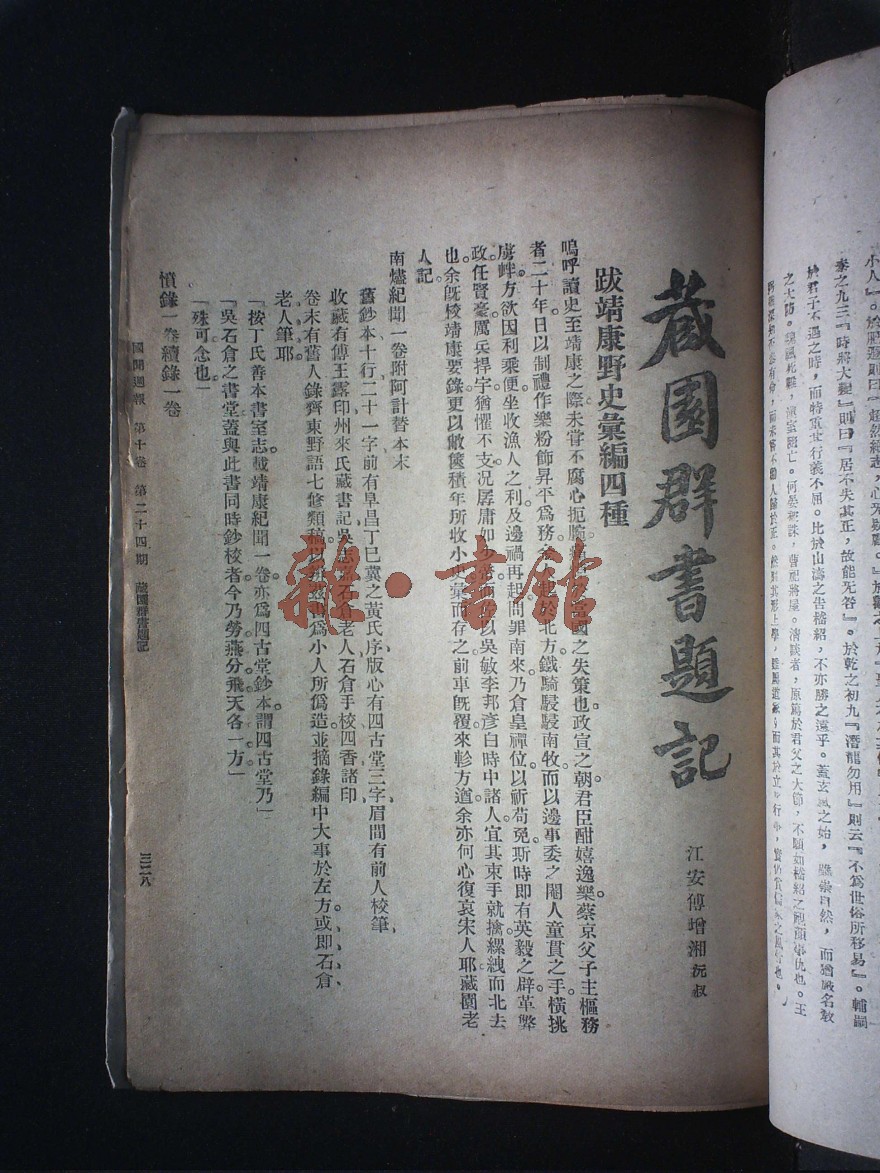 小人』。於
泰之九三『時將大變』則曰『居不失其正,故能无咎』。於乾之初九『潛龍勿用』則云『不爲世俗所移易』。輔嗣
於君子不遇之時,而特重世行義不屈。比於山濤之告嵇紹,不亦勝之遠乎。蓋玄風之始,雖崇自然,而猶嚴名教
之大防。何晏被誅,曹祀將屋。清談者,原篤於君父之大節,不願如嵇紹之事仇也。王
藏園群書題記
江安傅增湘沅叔
跋靖康野史彙編四種
嗚呼讀史至靖康之際未嘗不腐心扼腕國之失策也。政宣之朝君臣酣嬉逸樂蔡京父子主樞務
者二十年日以制禮作樂粉飾昇平爲務於北方鐵騎駸駸南牧而以邊事委之閹人童貫之手橫挑
虜衅方欲因利乘便坐收漁人之利及邊禍再起問罪南來乃倉皇禪位以祈苟免斯時即有英毅之辟革弊
政任賢豪厲兵捍宇猶懼不支況孱庸如以吳敏李邦彥白時中諸人宜其束手就擒縲絏而北去
也余旣校靖康要錄更以敝篋積年所收小史彙而存之前車旣覆來軫方遒余亦何心復哀宋人耶藏園老
人記
南燼紀聞一卷附阿計替本末
舊鈔本十行二十一字前有阜昌丁巳冀之黃氏序版心有四古堂三字眉間有前人校筆
收藏有傅王露印州來氏藏書記吳老人石倉手校四香諸印
卷末有舊人錄齊東野語七修類稿以爲小人所僞造並摘錄編中大事於左方或即石倉
老人筆耶
「按丁氏善本書室志載靖康紀聞一卷亦爲四古堂鈔本謂四古堂乃」
「吳石倉之書堂蓋與此書同時鈔校者今乃勞燕分飛天各一方」
「殊可念也」
憤錄一卷續錄一卷
國聞週報 第十卷 第二十四期 藏園群書題記
三二八
雜·書館